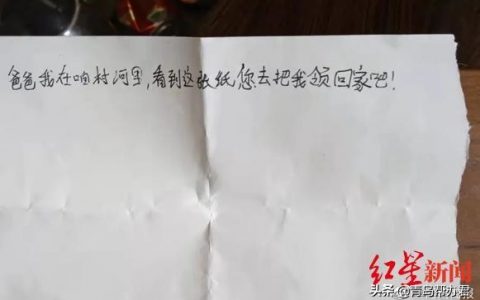 爸爸我在咱村河里,看到这张纸,您去把我领回家吧!
红星新闻
头条@青鸟帮办君